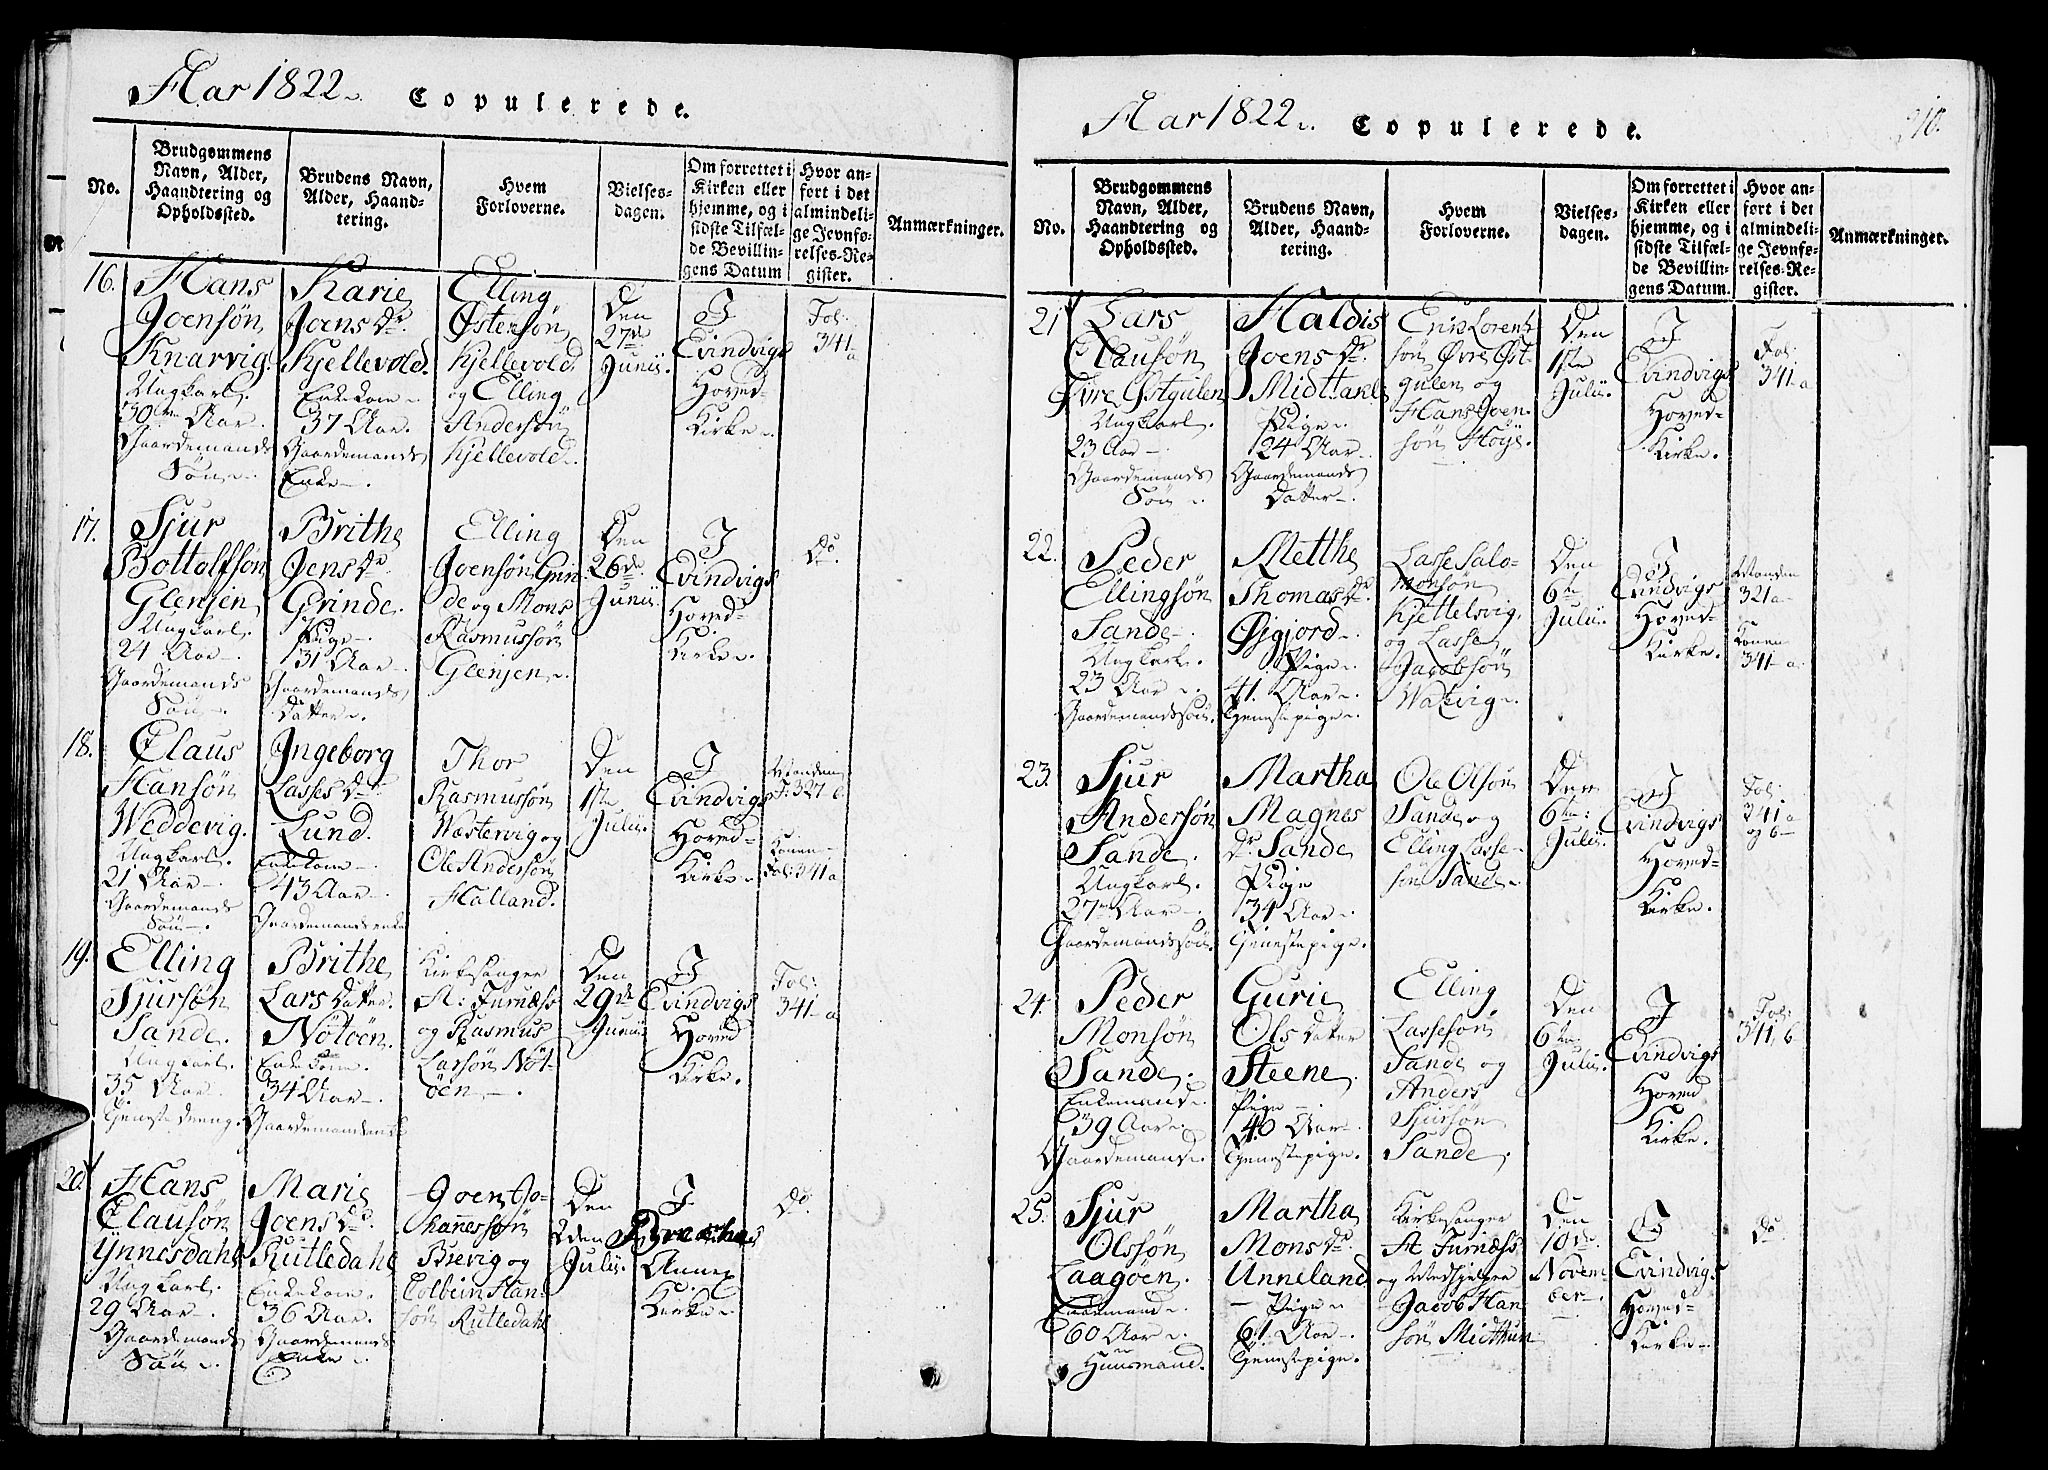 Aar 1822. Copulerede.
No.
Brudgommens
Navn, Alder,
Haandtering og
Opholdssted.
Brudens Navn,
Alder, Haand-
tering.
Hvem
Forloverne.
Vielses-
dagen.
Om forrettet i
Kirken eller
hjemme, og i
sidste Tilfæl-
de Bevillin-
gens Datum
Hvor an-
ført i det
almindeli-
ge Jevnfø-
relses-Re-
gister.
Anmærkninger.
16.
Hans
Joensøn
Knarvig.
Ungkarl.
30 Aar.
Gaardemands
Søn.
Karie
Joens Dr.
Kjellevold.
Enkekone.
37 Aar.
Gaardemands
Enke.
Elling
Østensøn
Kjellevold.
og Elling
Andersøn
Kjellevold.
Den
27de
Junii.
I
Evindvigs
Hoved-
Kirke.
Fol:
341-
a
17.
Sjur
Bottolfsøn
Glenjen
Ungkarl.
24 Aar.
Gaardemands
Søn.
Brithe
Jens Dr.
Grinde.
Pige.
31 Aar.
Gaardemands
Datter.
Elling
Joensøn Grin-
de og Mons
Rasmussøn
Glenjen.
Den
26de
Junii.
I
Evindvigs
Hoved-
Kirke.
Do.
18.
Claus
Hansøn
Weddevig.
Ungkarl.
21 Aar.
Gaardemands
Søn.
Ingeborg
Lasses Dr.
Lund.
Enkekone.
43 Aar.
Gaardemands enke
Thor
Rasmussøn
Wæstervig og
Ole Andersøn
Halland.
Den
1ste
Julii.
I
Evindvigs
Hoved-
Kirke.
Manden
F. 327 b
Konen
Fol: 341 a
19.
Elling
Sjursøn
Sande.
Ungkarl.
35 Aar.
Tjenestedreng.
Brithe
Lars Datter.
Nötöen.
Enkekone.
34 Aar.
Gaardemandsenke
Kirkesanger
A: Furnæss
og Rasmus
Larsøn Nöt-
öen.
Den
29de
Junii
I
Evindvigs
Hoved
Kirke.
Fol:
341- a
20.
Hans
Clausøn
Ynnesdahl
Ungkarl.
29 Aar.
Gaardemands
Søn.
Marie
Joens Dr.
Rutledahl
Enkekone.
36 Aar.
Gaardemands
Enke.
Joen Jo-
hannessøn
Brevig og
Colbein Han-
søn Rutledahl
Den
2den
Julii.
I
Annex
Kirke.
Do.
Aar 1822. Copulerede.
210.
No.
Brudgommens
Navn, Alder,
Haandtering og
Opholdssted.
Brudens Navn,
Alder, Haand-
tering.
Hvem
Forloverne.
Vielses-
dagen.
Om forrettet i
Kirken eller
hjemme, og i
sidste Tilfæl-
de Bevillin-
gens Datum.
Hvor an-
ført i det
almindeli-
ge Jevnfø-
relses-Re-
gister.
Anmærkninger.
21
Lars
Clausøn
Øvre Østgulen
Ungkarl.
23 Aar.
Gaardemands
Søn.
Haldis
Joens Dr.
Midttarl
Pige.
24 Aar.
Gaardemands
Datter.
Erik Lorentz
søn Øvre Øst-
gulen og
Hans Joen-
søn Høye.
Den
1ste
Julii.
I
Evindvigs
Hoved-
Kirke.
Fol:
341- a
22.
Peder
Ellingsøn
Sande.
Ungkarl.
23 Aar.
Gaardemandssøn.
Metthe
Thomas Dr.
Øigjord.
Pige.
41. Aar.
Tjenestepige.
Lasse Salo-
monsøn
Kjettelsvig.
og Lasse
Jacobsøn
Wakvig.
Den
6te
Julii.
I
Evindvigs
Hoved-
Kirke.
Manden
321 a
Konen
341- a.
23.
Sjur
Andersøn
Sande.
Ungkarl.
27 Aar.
Gaardemandssøn.
Martha
Magnes
Dr. Sande
Pige
34 Aar.
Tjenestepige.
Ole Olsøn
Sande og
Elling Lasse-
søn Sande.
Den
6te
Julii.
I
Evindvigs
Hoved-
Kirke.
Fol:
341 a
og b
24.
Peder
Monsøn
Sande.
Enkemand.
39 Aar.
Gaardemand.
Gurie
Ols Datter
Steene.
Pige.
40 Aar.
Tjenestepige.
Elling
Lassesøn
Sande og
Anders
Sjursøn
Sande.
Den
6te
Julii.
I
Evindvigs
Hoved
Kirke.
Fol:
341, b
25.
Sjur
Olssøn
Laagøen.
Enkemand.
60 Aar.
Huusmand.
Martha
Mons Dr.
Unneland
Pige.
61 Aar.
Tjenestepige.
Kirkesanger
A Furnæss.
og Medhjelper
Jacob Han-
søn Midthun
Den
10de
Novem-
ber.
I
Evindvigs
Hoved-
Kirke.
Do